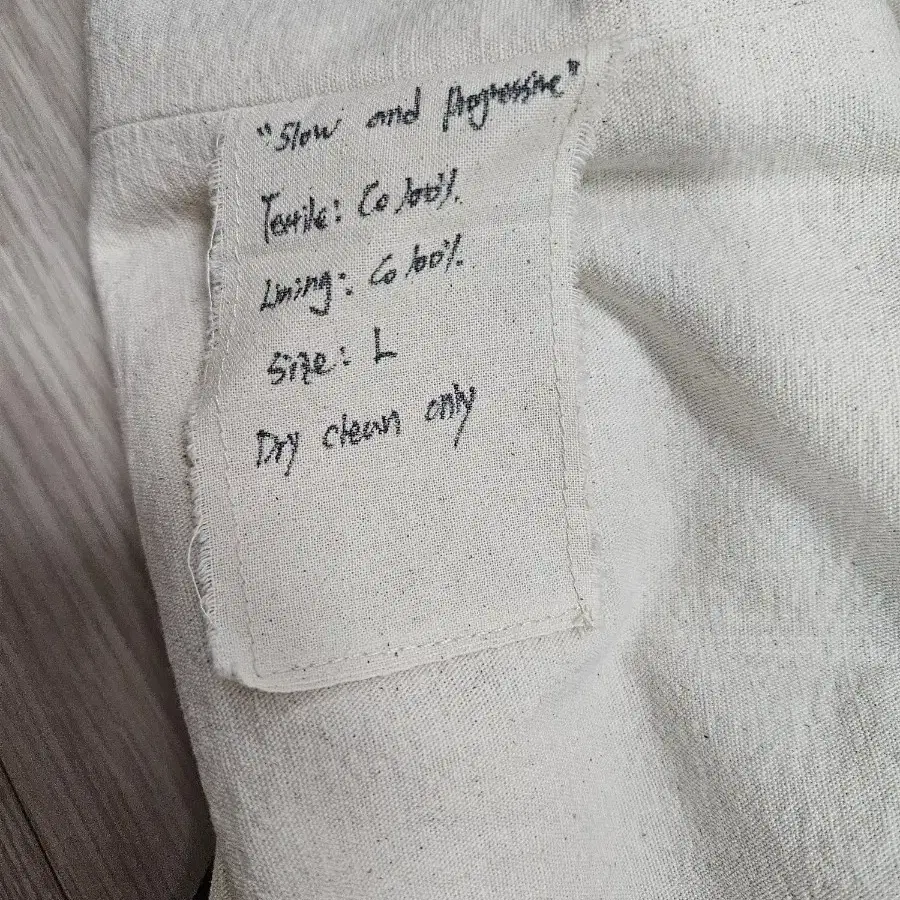 "Slow and Progressive"
Textile: Co 100%.
Lining: Co 100%.
Size: L
Dry clean only